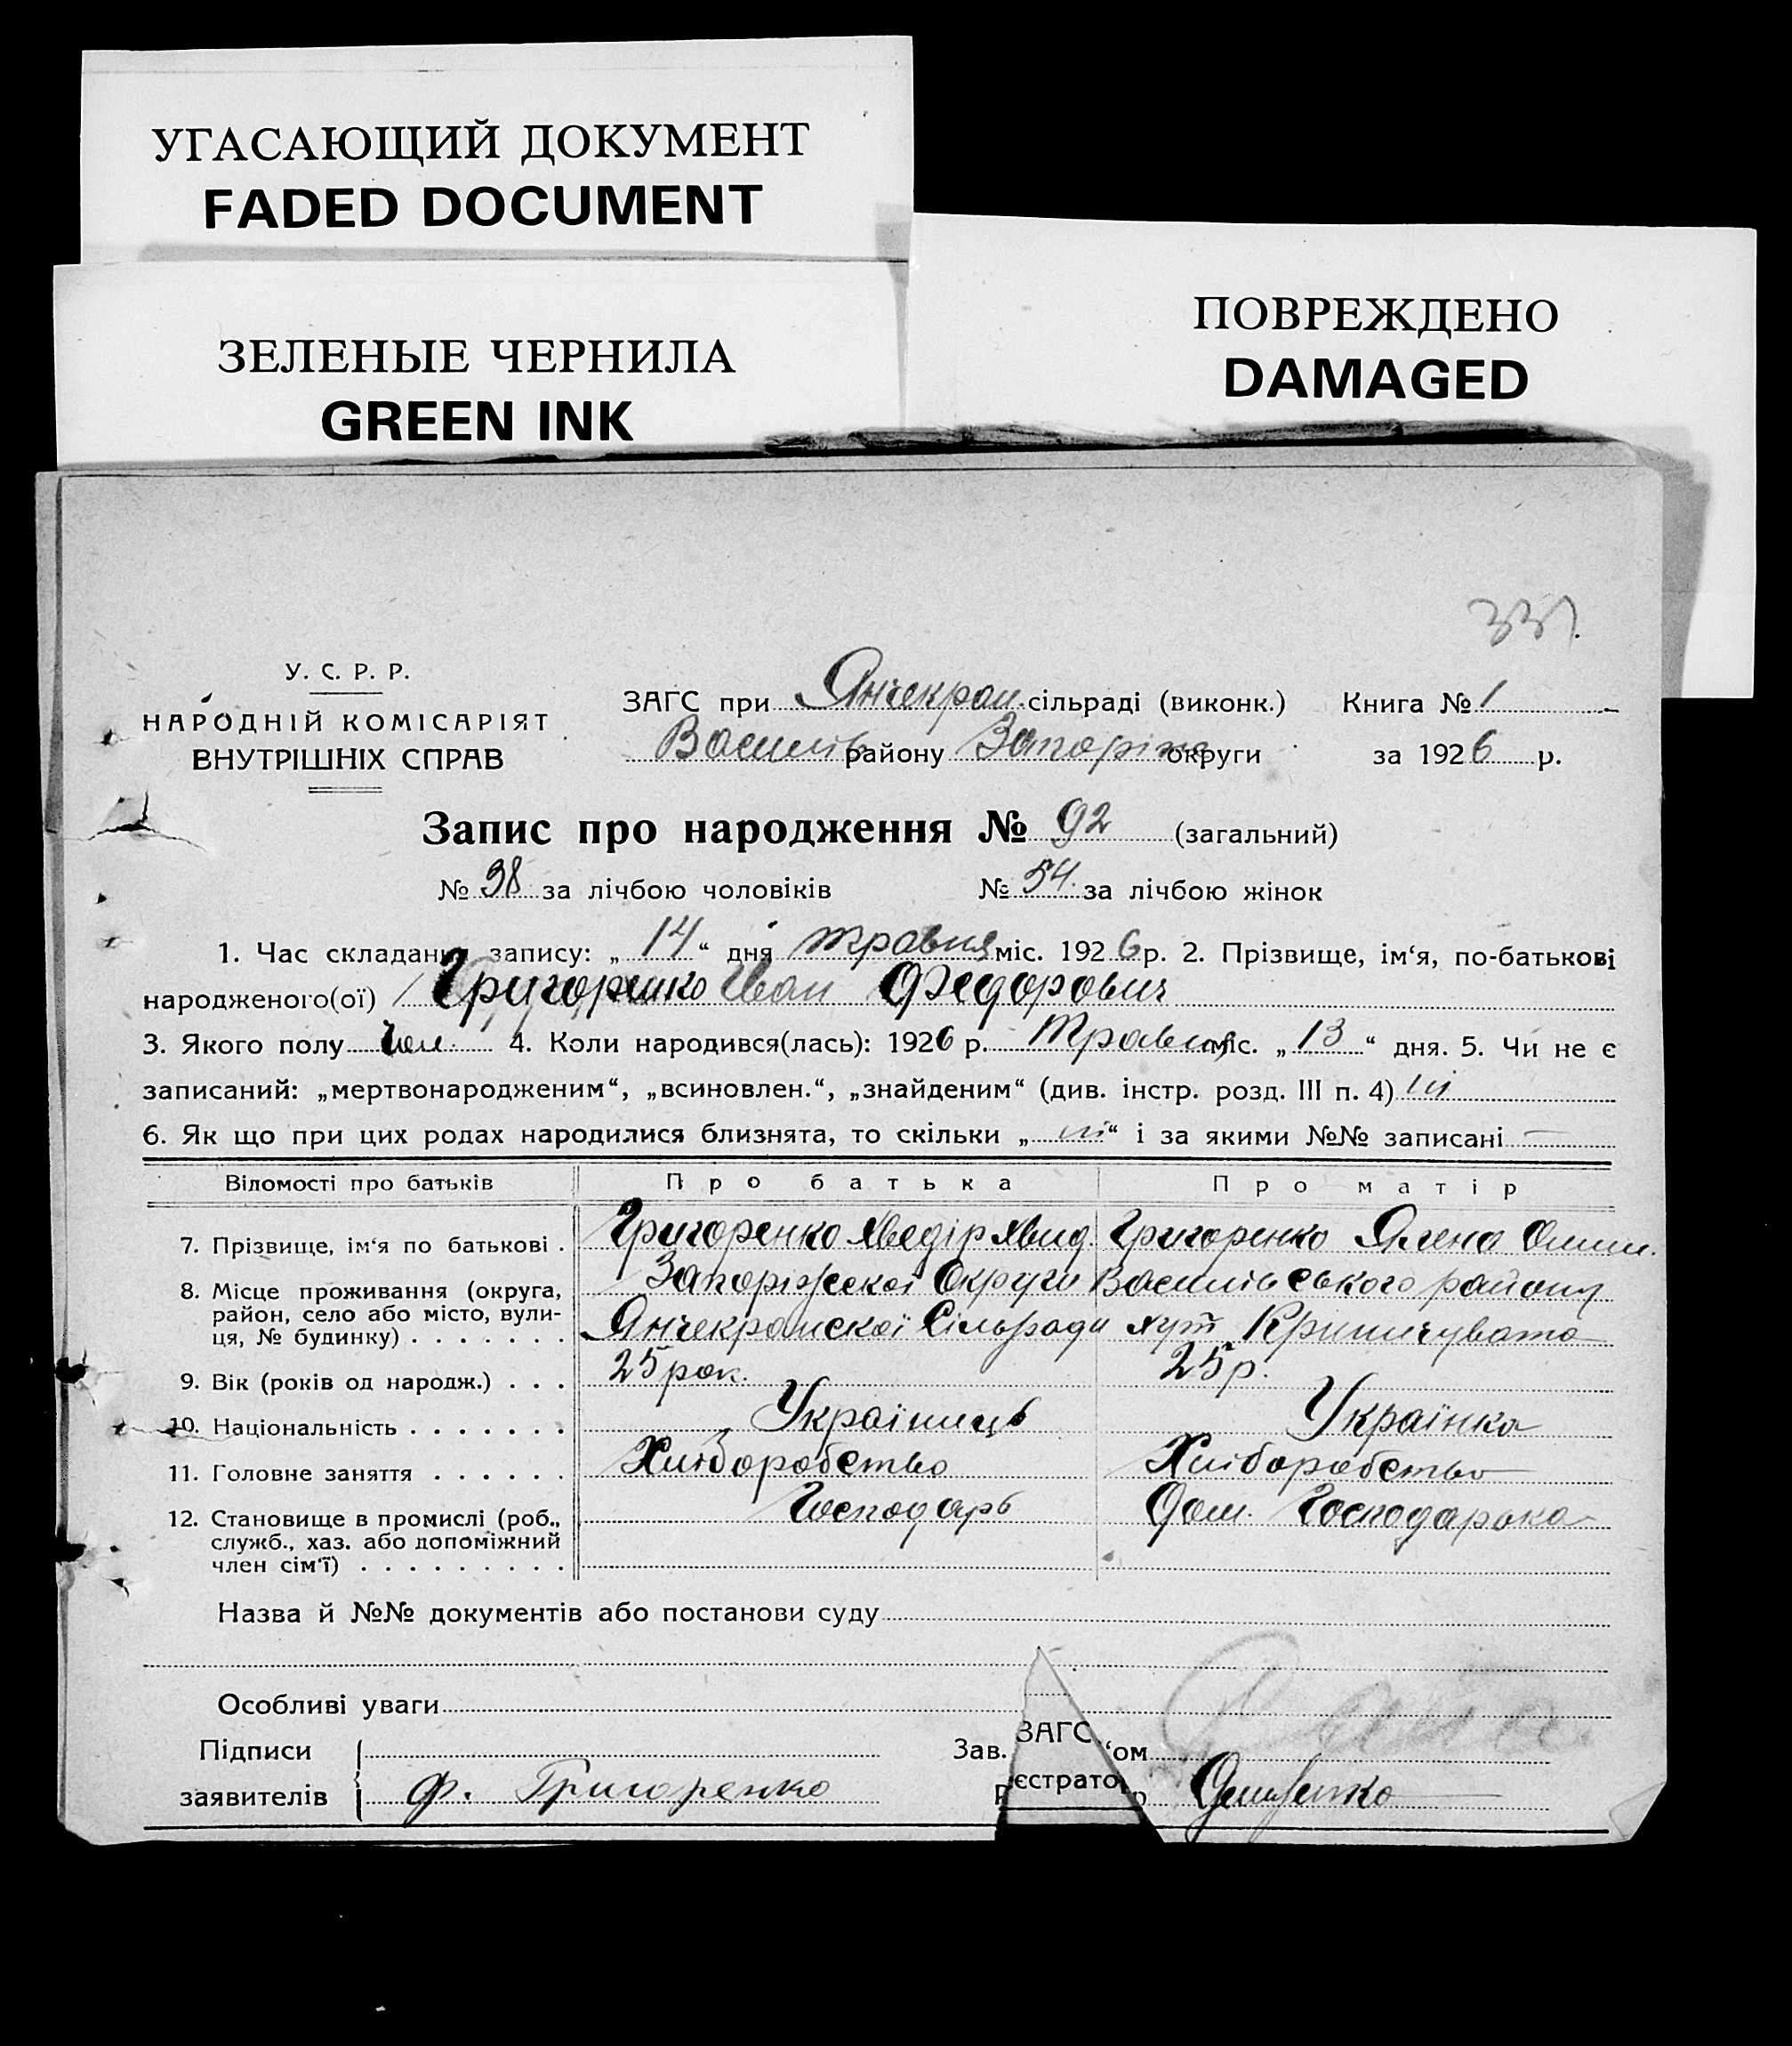 УГАСАЮЩИЙ ДОКУМЕНТ
FADED DOCUMENT
ЗЕЛЕНЫЕ ЧЕРНИЛА
GREEN INK
ПОВРЕЖДЕНО
DAMAGED
331.
У. С. Р. Р.
НАРОДНІЙ КОМІСАРІЯТ
ВНУТРІШНІХ СПРАВ
ЗАГС при Янчекрак. сільраді (виконк.) Книга № 1
Василів району Запоріжк округи за 1926 р.
Запис про народження № 92 (загальний)
№ 38 за лічбою чоловіків № 54. за лічбою жінок
1. Час складання запису: „ 14 “ дня травня міс. 1926 р. 2. Прізвище, ім‘я, по-батькові
народженого(ої) Григоренко Іван Федорович
3. Якого полу Чол. 4. Коли народився(лась): 1926 р. Травня міс. „ 13 “ дня. 5. Чи не є
записаний: „мертвонародженим“, „всиновлен.“, „знайденим“ (див. інстр. розд. III п. 4) ні
6. Як що при цих родах народилися близнята, то скільки „ ні “ і за якими №№ записані —
Відомості про батьків Про батька Про матір
7. Прізвище, ім‘я по батькові . Григоренко Хведір Григоренко Ялена
8. Місце проживання (округа, Запоріжскої Округи Василівського району
район, село або місто, вули-
ця, № будинку) . . . . . . . Янчекракскої Сільради хут Криничувата
9. Вік (років од народж.) . . . 25 рок. 25 р.
10. Національність . . . . . . . Українець Українка
11. Головне заняття . . . . . . Хліборобство Хліборобство
12. Становище в промислі (роб., Господарь Дом. Господарка
служб., хаз. або допоміжний
член сім‘ї) . . . . . . . . .
Назва й №№ документів або постанови суду
Особливі уваги
Підписи Зав. ЗАГС‘ом
заявителів Ф. Григоренко Реєстратор